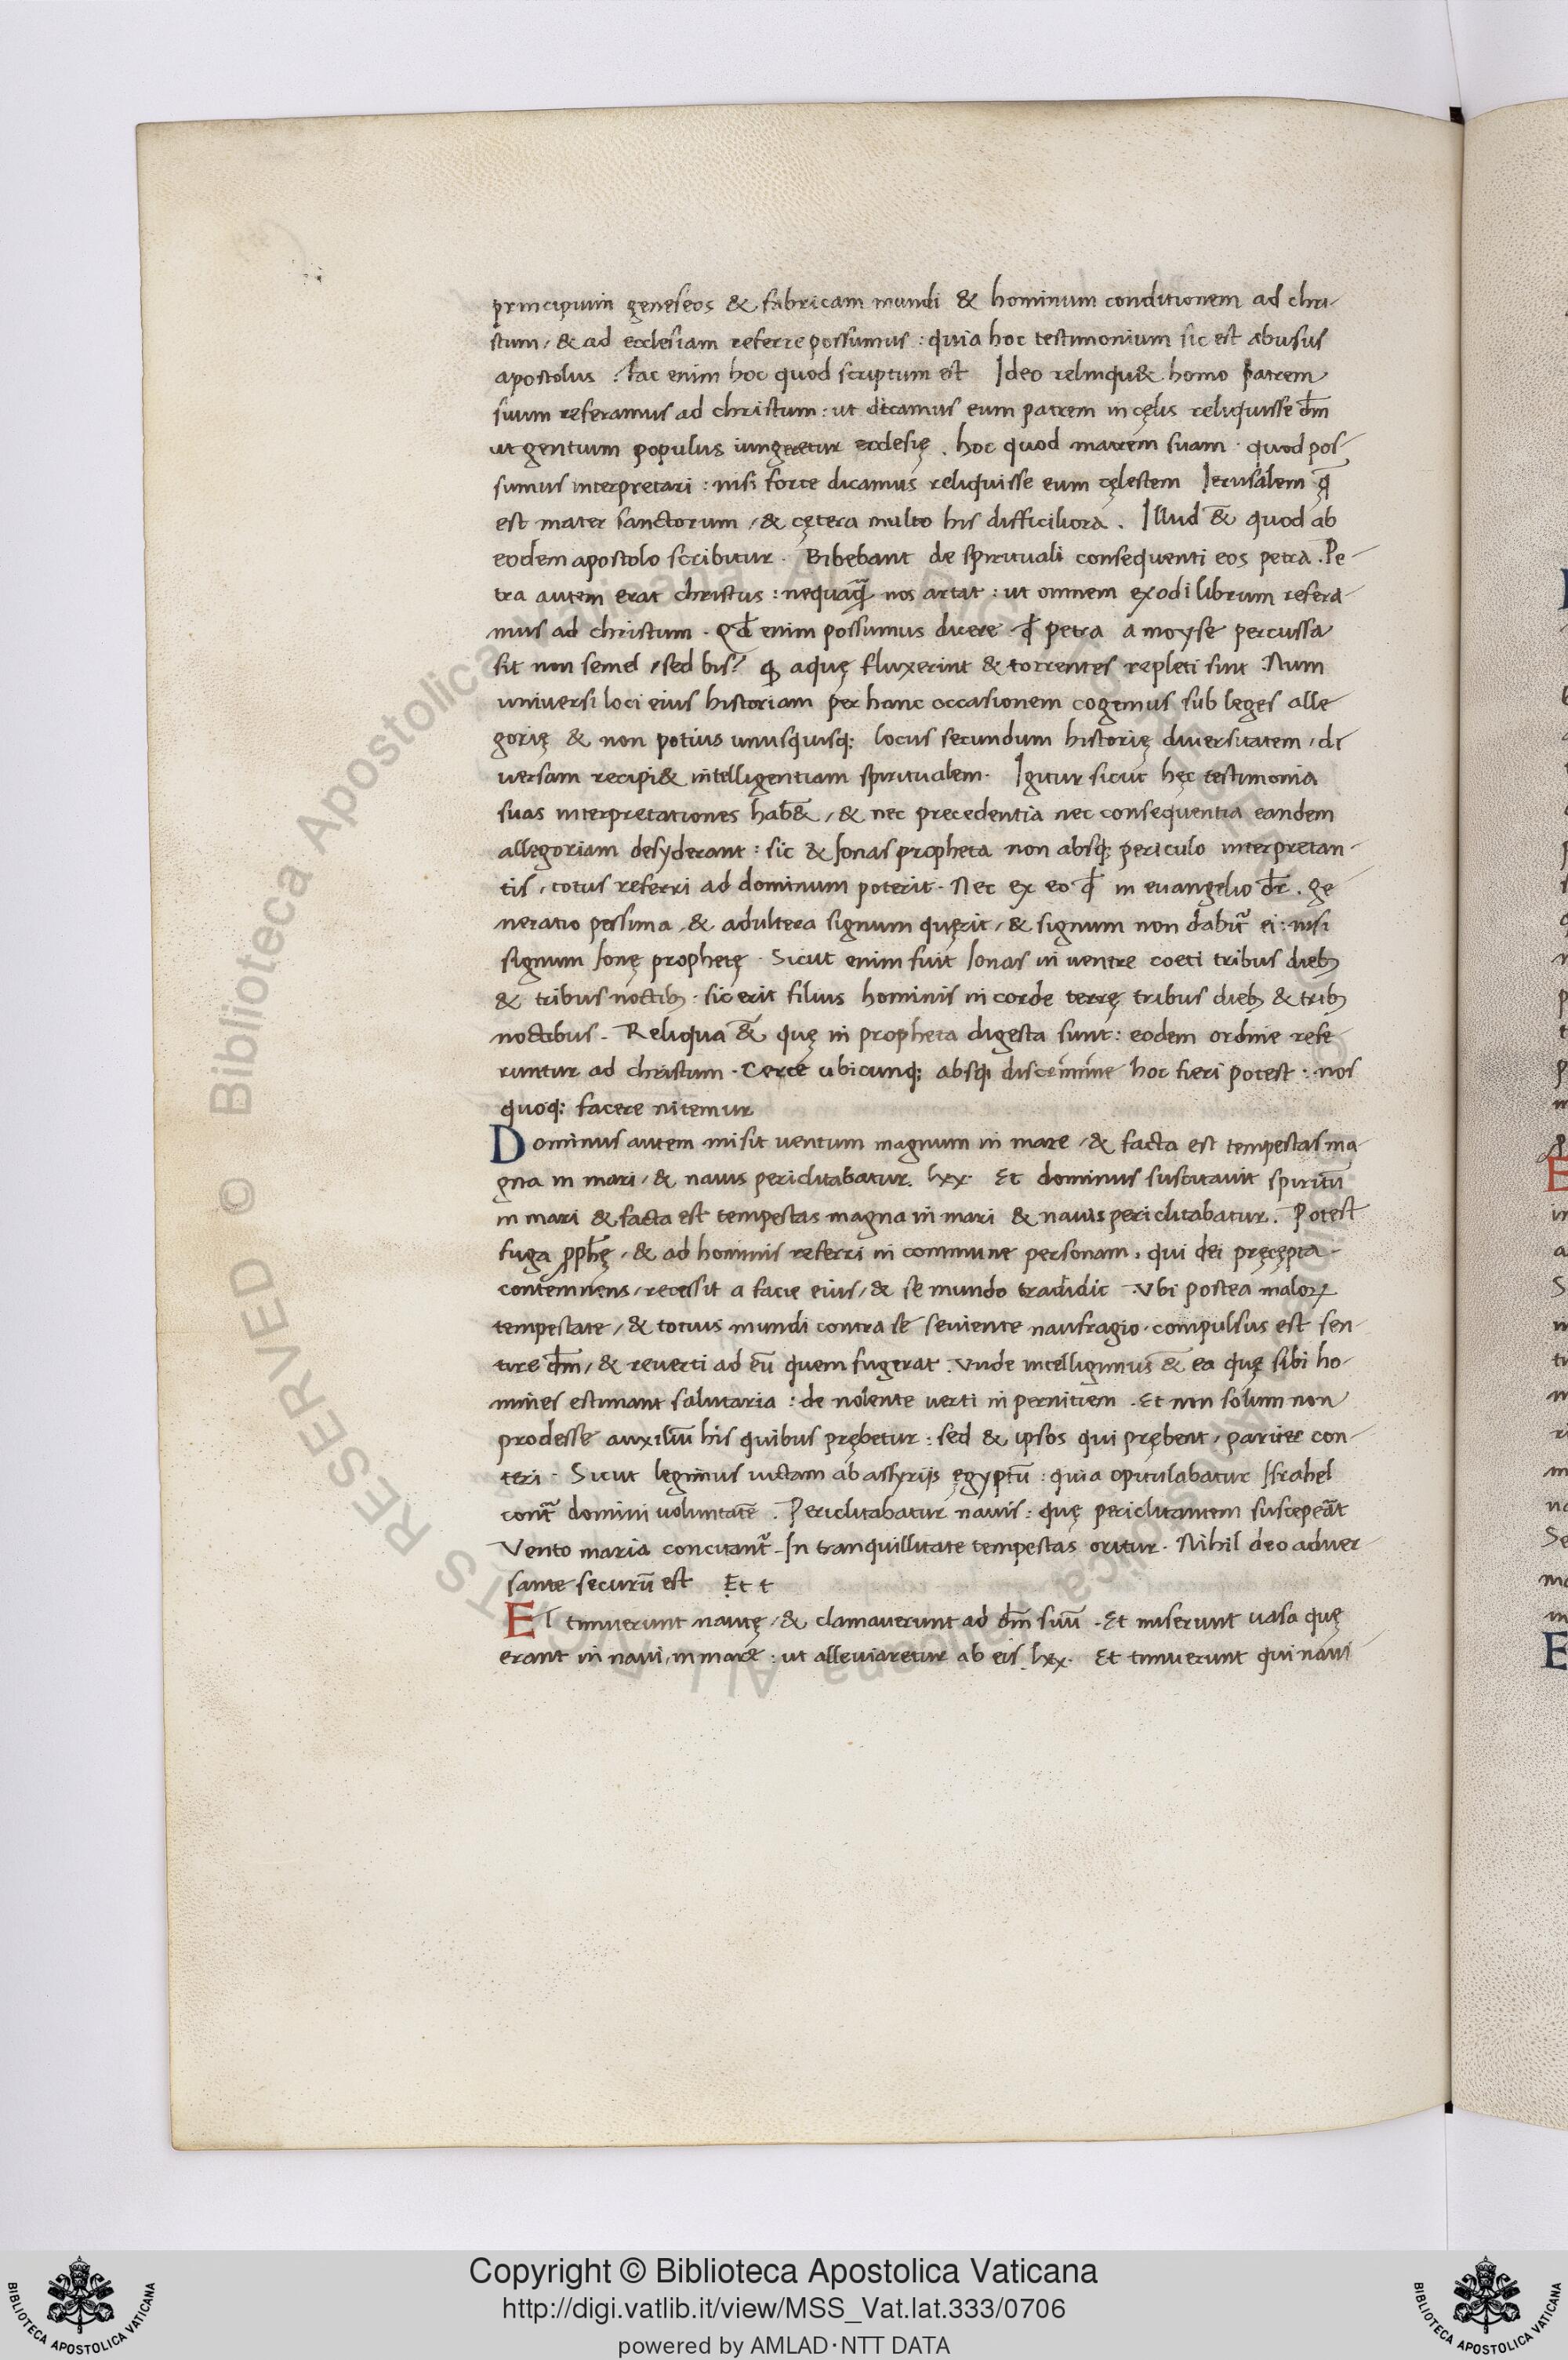 principium geneseos & fabricam mundi & hominum conditionem ad chri-
stum, & ad ecclesiam referre possumus : quia hoc testimonium sic est abusus
apostolus . Fac enim hoc quod scriptum est Ideo relinqu& homo patrem
suum referamus ad christum : ut dicamus eum patrem in cęlis reliquisse dm̄
ut gentium populus iungeretur ecclesię . hoc quod matrem suam . quod pos-
sumus interpretari : nisi forte dicamus reliquisse eum cęlestem Ierusalem q̄
est mater sanctorum, & cętera multo his difficiliora . Illud &̄ quod ab
eodem apostolo scribitur . Bibebant de spirituali consequenti eos petra . Pe-
tra autem erat christus : nequaq̄ nos artat : ut omnem exodi librum refera-
mus ad christum . Qđ enim possumus dicere qđ petra a moyse percussa
sit non semel, sed bis? ꝙ aquę fluxerint & torrentes repleti sint . Num
universi loci eius historiam per hanc occasionem cogemus sub leges alle-
gorię & non potius unusquisq; locus secundum historię diversitatem, di
versam recipi& intelligentiam spiritualem . Igitur sicut hęc testimonia
suas interpretationes hab&̄, & nec precedentia nec consequentia eandem
allegoriam desyderant : sic & Ionas propheta non absq; periculo interpretan-
tis, totus referri ad dominum poterit . Nec ex eo qđ in euangelio dr̄ . ge-
neratio pessima, & adultera signum quęrit, & signum non dabit̄ ei : nisi
signum Ionę prophetę . Sicut enim fuit Ionas in uentre coeti tribus dieb;
& tribus noctib; . sic erit filius hominis in corde terrę tribus dieb; & trib;
noctibus . Reliqua &̄ quę in propheta digesta sunt : eodem ordine refe-
runtur ad christum . Certe ubicunq; absq; discrimine hoc fieri potest : nos
quoq; facere nitemur
Dominus autem misit uentum magnum in mare, & facta est tempestas ma
gna in mari, & nauis periclitabatur. lxx . Et dominus suscitauit spiritū
in mari & facta est tempestas magna in mari & nauis periclitabatur . Potest
fuga pphę̄, & ad hominis referri in commune personam, qui dei pręcępta
contemnens, recessit a facie eius, & se mundo tradidit . Vbi postea maloꝝ
tempestate, & totius mundi contra se seuiente naufragio . compulsus est sen-
tire dm̄, & reuerti ad eū quem fugerat . Vnde intelligimus &̄ ea quę sibi ho-
mines estimant salutaria : de nolente uerti in pernitiem . Et non solum non
prodesse auxiliū his quibus prębetur : sed & ipsos qui prębent, pariter con-
teri . Sicut legimus uictam ab assyrijs ęgyptū : quia opitulabatur Israhel
cont̄ domini uoluntatē . Periclitabatur nauis : quę periclitantem suscepeāt
Vento maria concitant̄ . In tranquillitate tempestas oritur . Nihil deo aduer
sante securū est Et t
ET timuerunt nautę, & clamauerunt ad dm̄ suū . Et miserunt uasa quę
erant in naui, in mare : ut alleuiaretur ab eis . lxx . Et timuerunt qui naui
© Biblioteca Apostolica Vaticana ALL RIGHTS RESERVED
Copyright © Biblioteca Apostolica Vaticana
http://digi.vatlib.it/view/MSS_Vat.lat.333/0706
powered by AMLAD·NTT DATA
BIBLIOTECA APOSTOLICA VATICANA
BIBLIOTECA APOSTOLICA VATICANA